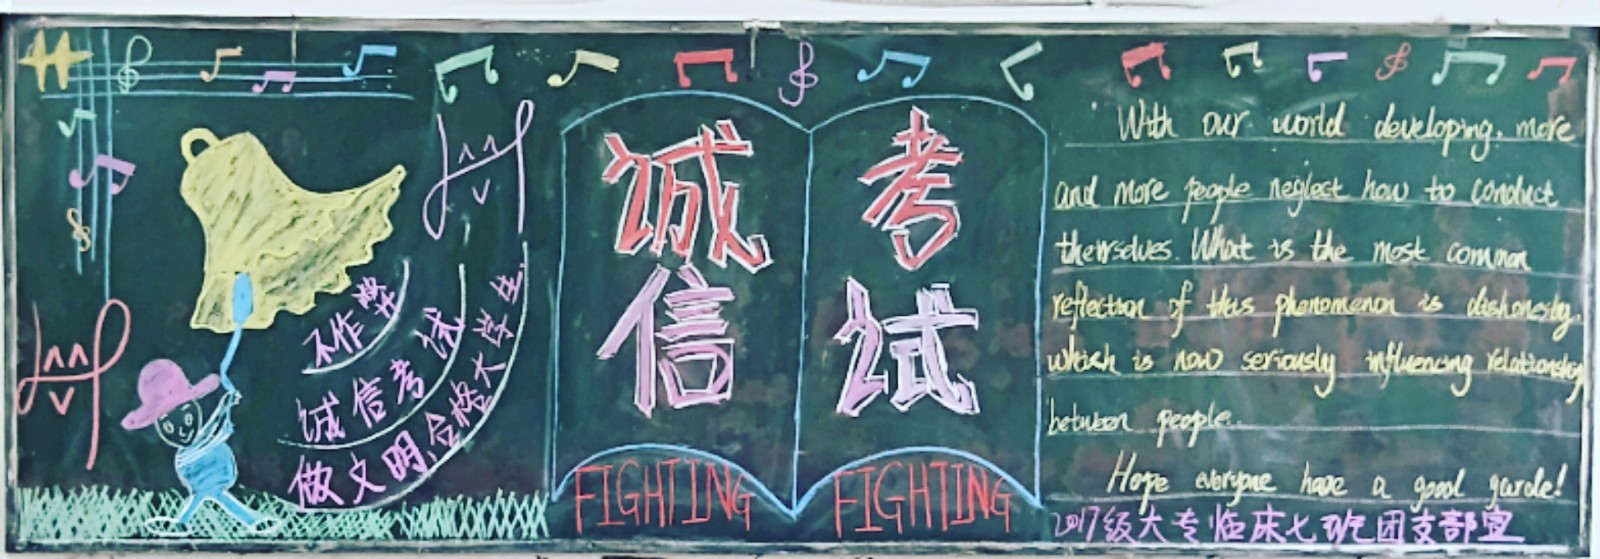 不作弊
诚信考试
做文明,合格大学生
诚信
考试
FIGHTING
FIGHTING
With our world developing, more
and more people neglect how to conduct
themselves. What is the most common
reflection of this phenomenon is dishonesty.
which is now seriously influencing relationship
between people.
Hope everyone have a good garde!
2017级大专临床七班团支部宣